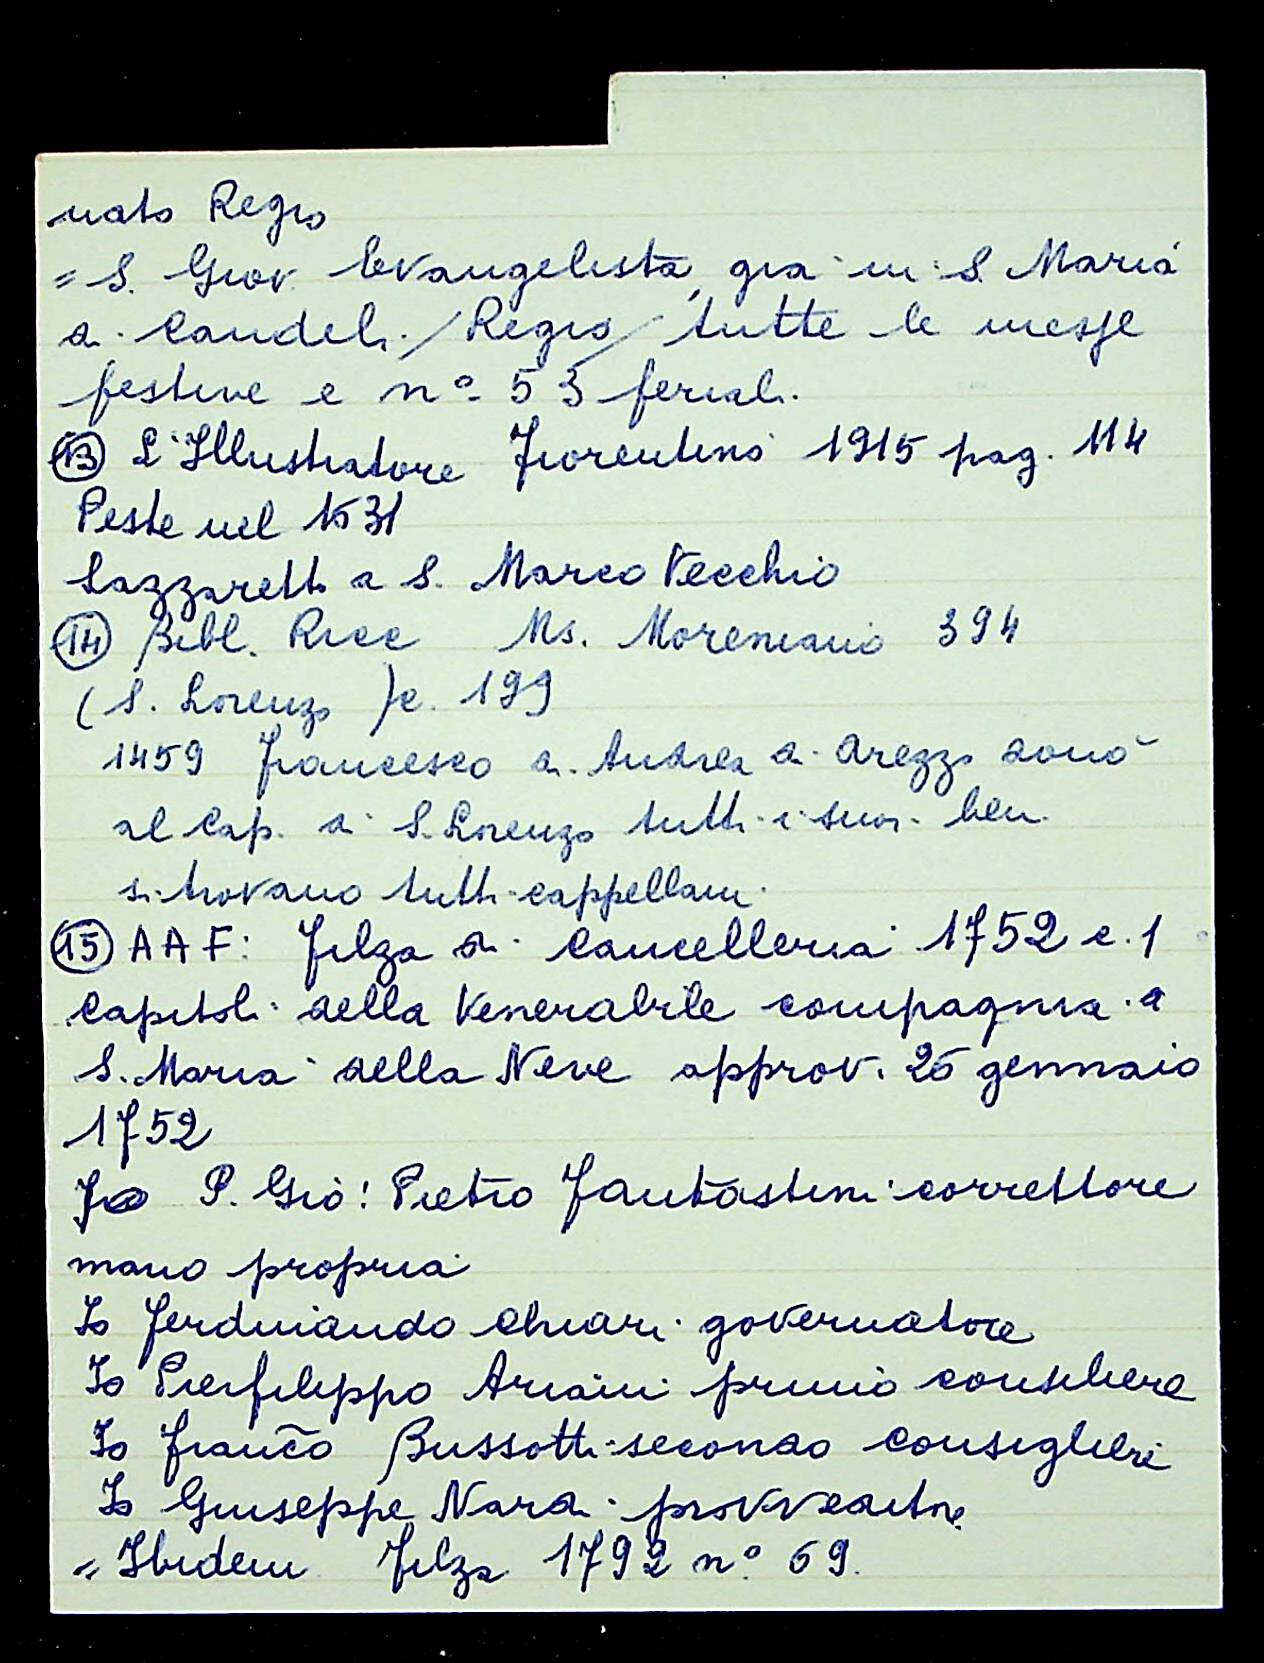 nato Regio
= S. Giov. Evangelista, già in S. Maria
di Candeli / Regio / tutte le messe
festive e n° 53 feriali.
(13) L'Illustratore Fiorentino 1915 pag. 114
Peste nel 1531
Lazzaretti a S. Marco Vecchio
(14) Bibl. Ricc Ms. Moreniano 394
(S. Lorenzo) c. 199
1459 Francesco di Andrea di Arezzo donò
al Cap. di S. Lorenzo tutti i suoi beni
si trovano tutti cappellani
(15) AAF: Filza di Cancelleria 1752 c. 1
Capitoli della Venerabile compagnia di
S. Maria della Neve approv. 25 gennaio
1752
Io P. Gio: Pietro Fantastini correttore
mano propria
Io Ferdinando Chiari governatore
Io Pierfilippo Ariani primo consiliere
Io Franc̃o Bussotti secondo consigliere
Io Giuseppe Nardi provveditore
= Ibidem Filza 1792 n° 69.